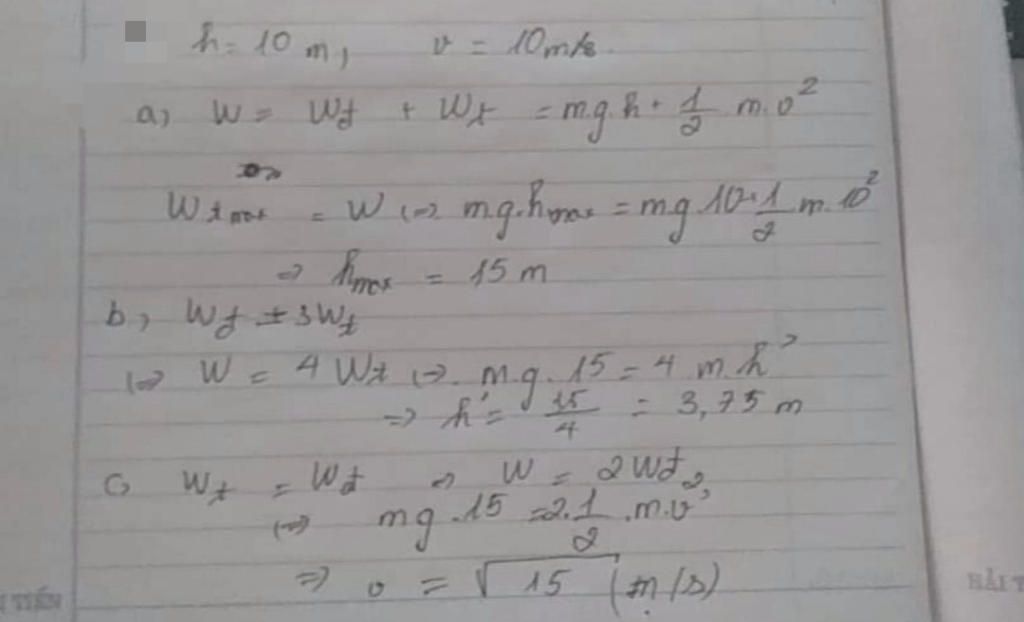 h = 10 m, v = 10 m/s.
a) W = Wđ + Wt = mg.h + 1/2 m.v²
Wt max = W (=) mg.hmax = mg.10 + 1/2 m.10²
=> hmax = 15 m
b) Wđ = 3Wt
(=) W = 4Wt (=) m.g.15 = 4 m.h'
=> h' = 15/4 = 3,75 m
c) Wt = Wđ => W = 2Wđ
(=) mg.15 = 2.1/2.m.v²
=> v = √15 (m/s)
HẢI T
TIẾN